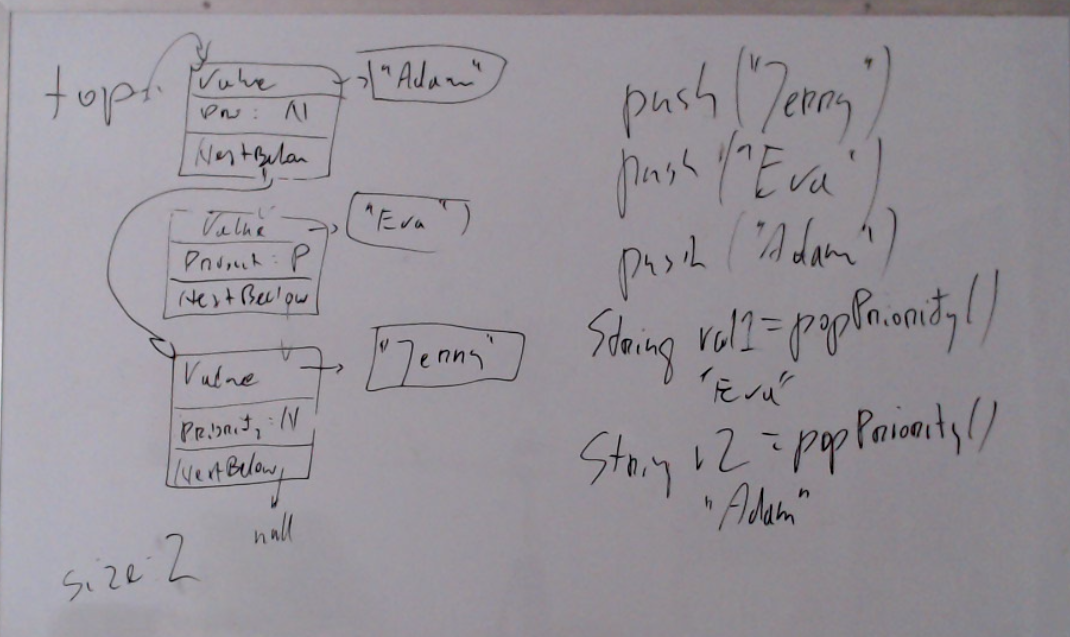 top:
Value
"Adam"
Prio: N
NextBelow
Value
"Eva"
Priorit: P
NextBellow
Value
"Jenny"
Priority: N
NextBelow
null
size: 2
push ("Jenny")
push ("Eva")
push ("Adam")
String val1 = popPriority()
"Eva"
String v2 = popPriority()
"Adam"